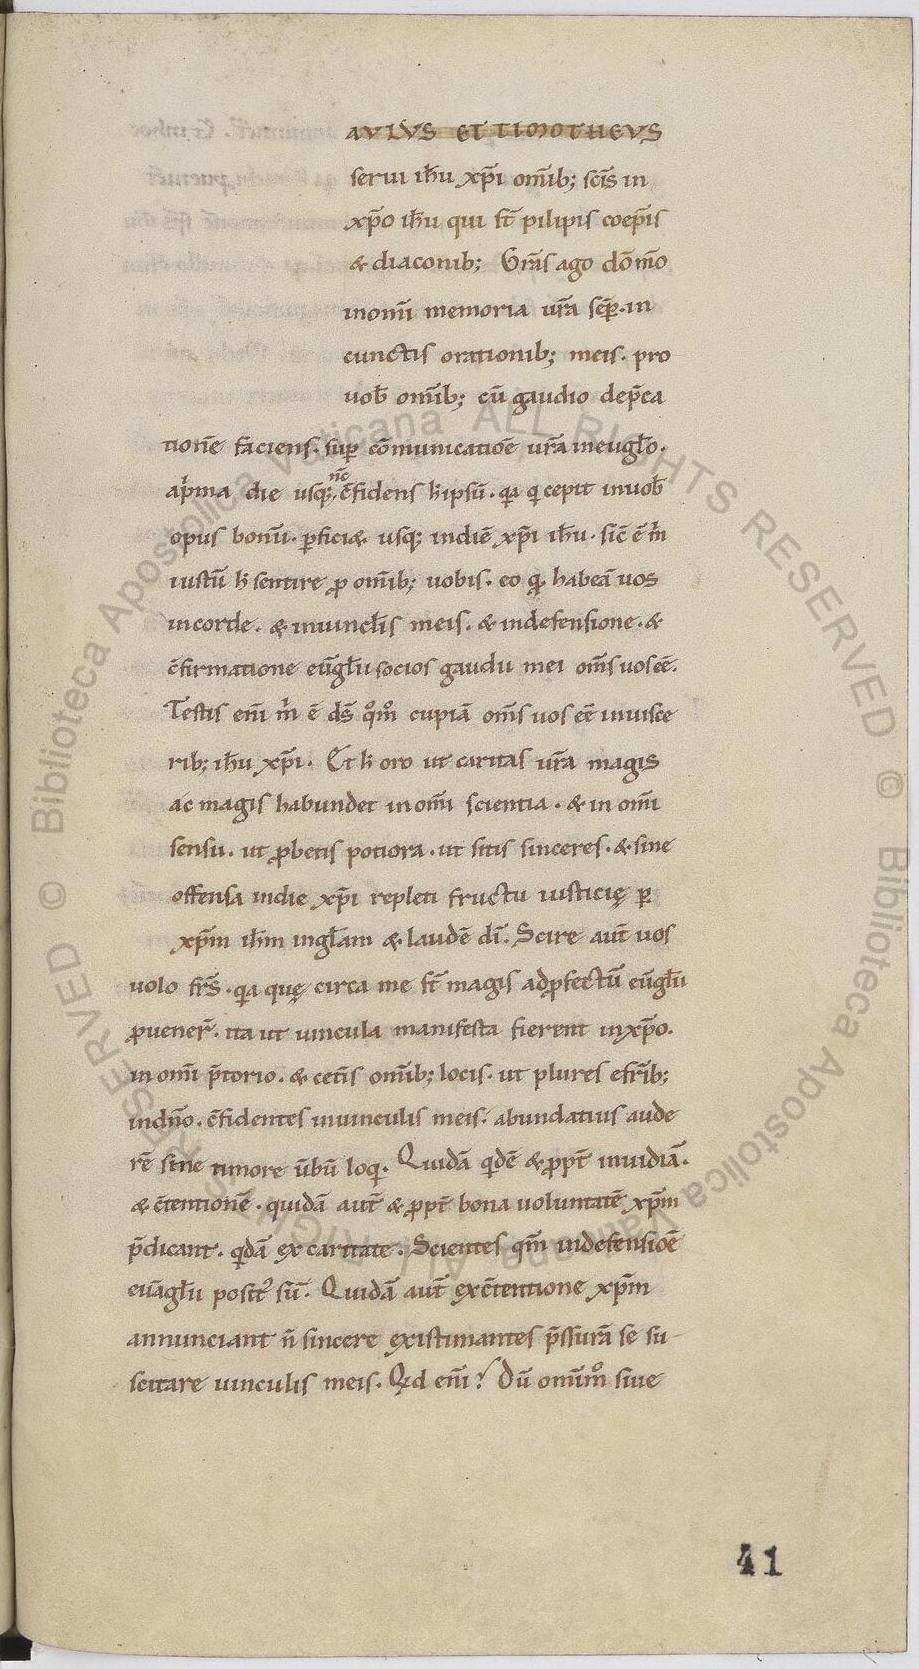 AVLVS ET TIMOTHEVS
serui ih̅u xp̅i om̅ib; sc̅is in
xp̅o ih̅u qui st̅ pilipis coep̅is
& diaconib; Gr̅as ago dō m̅o
inom̅i memoria ur̅a sēp̲. in
cunctis orationib; meis. pro
uob̅ om̅ib; cū gaudio dep̅ca
tione̅ faciens. sup̲ cōmunicatiōe ur̅a ineugl̅o.
ap̍ma die usq; nc̅ c̅fidens h̍ ipsū. qa q̍ cepit inuob̅
opus bonū. p̲fici&. usq; indiē xp̅i ih̅u. sic̅ ē m̍
iustū h̍ sentire ꝓ om̅ib; uobis. eo qd̲ habeā uos
incorde. & inuincl̅is meis. & indefensione. &
c̅firmatione eu̅gl̅ii socios gaudii mei om̅s uos ēē.
Testis eni̅ m̍ ē d̅s qm̊ cupiā om̅s uos ēē inuisce
rib; ih̅u xp̅i. Et h̍ oro ut caritas ur̅a magis
ac magis habundet inom̅i scientia. & in om̅i
sensu. ut ꝓbetis potiora. ut sitis sinceres. & sine
offensa indie xp̅i repleti fructu iusticię p̲
xp̅m ih̅m ingl̅am & laudē di̅. Scire aut̅ uos
uolo fr̅s. qa quę circa me st̅ magis adꝓfectū eu̅gl̅ii
ꝓuener̅. ita ut uincula manifesta fierent inxp̅o.
in om̅i p̅torio. & cet̅is om̅ib; locis. ut plures efr̅ib;
indn̅o. c̅fidentes inuinculis meis. abundatius aude
rē sine timore u̅bū loq̍. Quidā qdē & ꝓpt̅ inuidiā.
& c̅tentionē. quidā aut̅ & ꝓpt̅ bona uoluntatē xp̅m
p̅dicant. qdā ex caritate. Scientes qm̅ indefensiōē
eua̅gl̅ii posit᾿ sū. Quidā aut̅ exc̅tentione xp̅m
annunciant n̅ sincere existimantes p̅ssurā se su-
scitare uinculis meis. Qd eni̅? Dū omim̊ siue
41
© Biblioteca Apostolica Vaticana ALL RIGHTS RESERVED
© Biblioteca Apostolica Vaticana ALL RIGHTS RESERVED